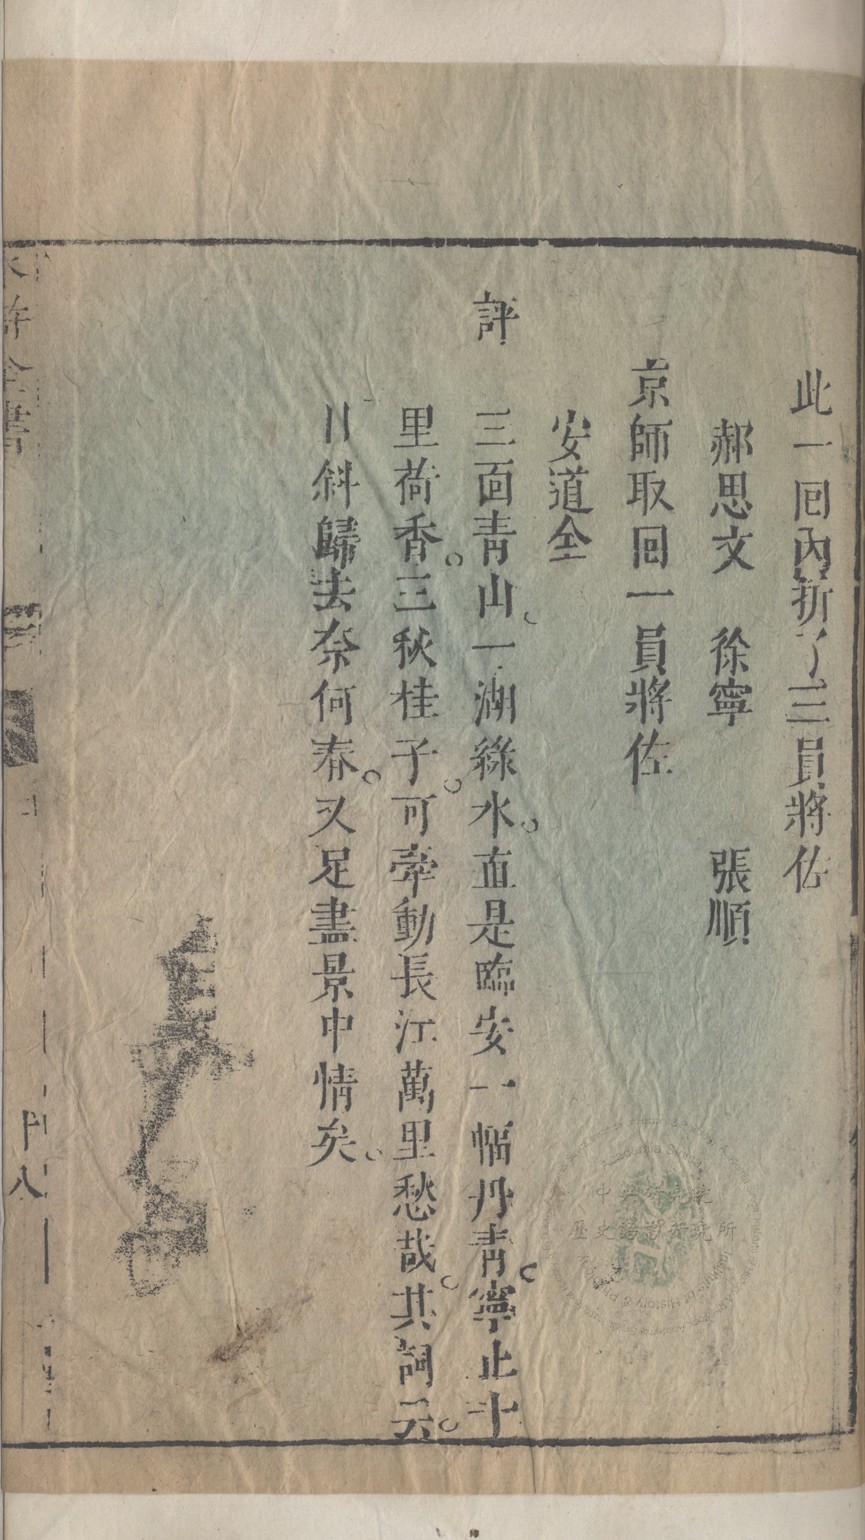 此一囘內折了三員將佐
郝思文 徐寧 張順
京師取囘一員將佐
安道全
評 三面青山一湖綠水直是臨安一幅丹青寧止十
里荷香三秋桂子可牽動長江萬里愁哉其詞云
日斜歸去奈何春又足盡景中情矣
水滸全書
十八
中央研究院
歷史語言研究所